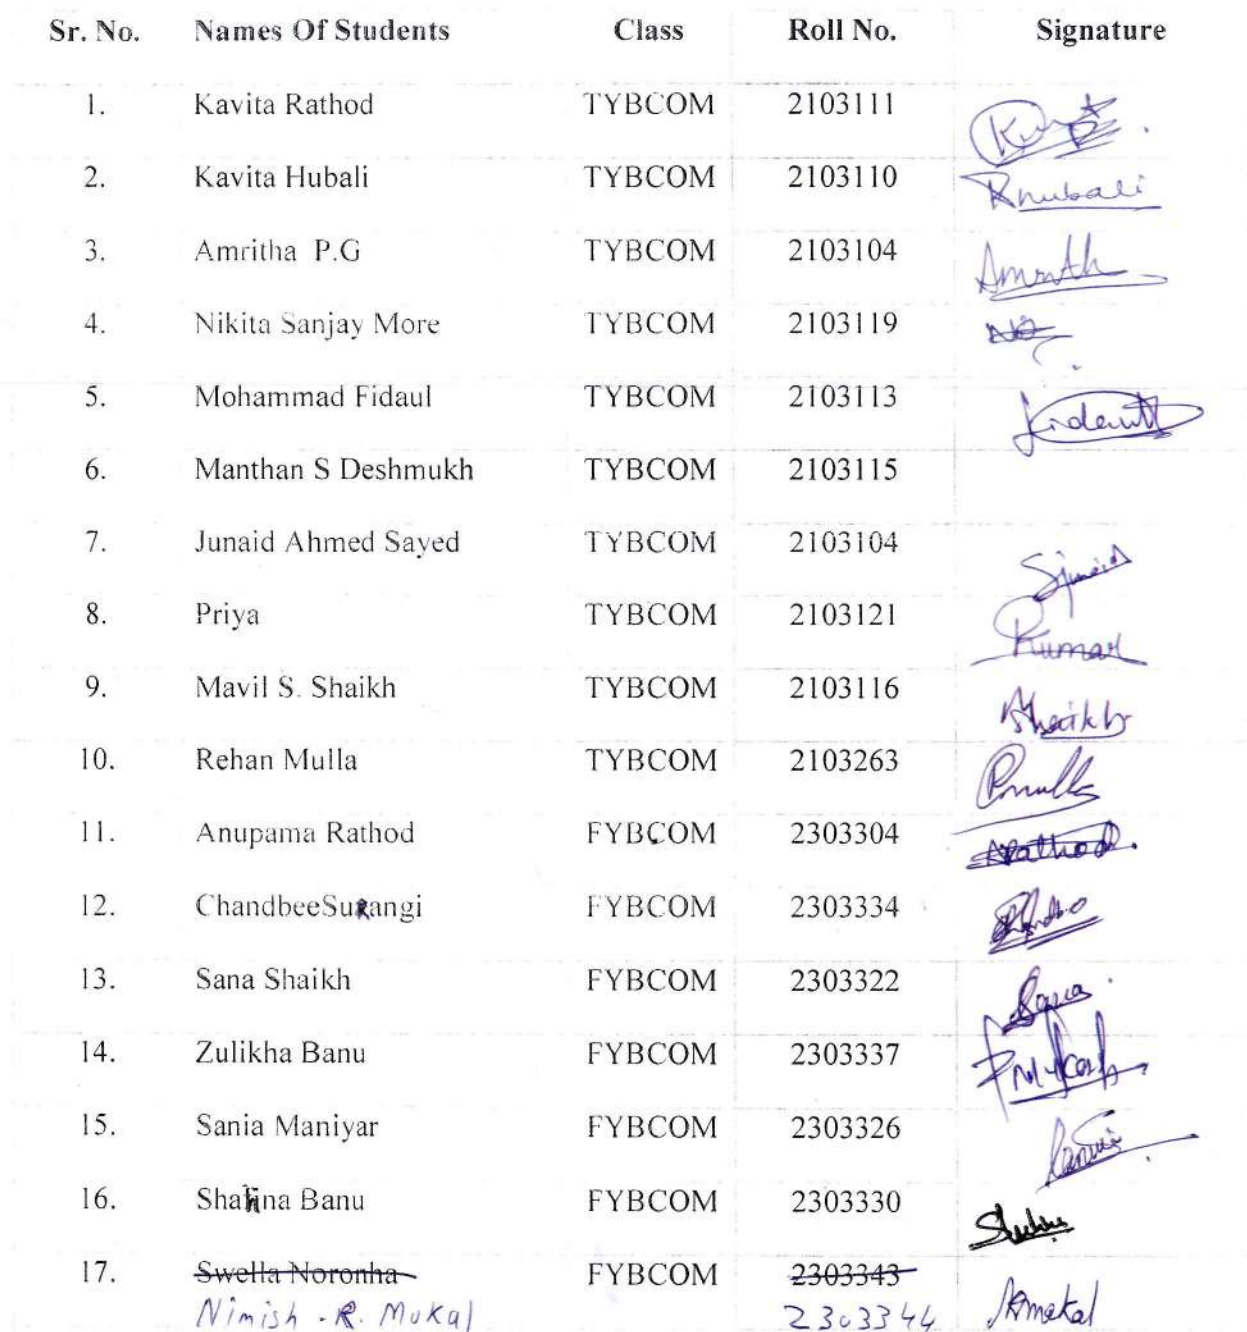 Sr. No. Names Of Students Class Roll No. Signature
1. Kavita Rathod TYBCOM 2103111
2. Kavita Hubali TYBCOM 2103110 Khubali
3. Amritha P.G TYBCOM 2103104 Amrith
4. Nikita Sanjay More TYBCOM 2103119
5. Mohammad Fidaul TYBCOM 2103113
6. Manthan S Deshmukh TYBCOM 2103115
7. Junaid Ahmed Sayed TYBCOM 2103104 Sjunaid
8. Priya TYBCOM 2103121 Kumar
9. Mavil S. Shaikh TYBCOM 2103116 Shaikh
10. Rehan Mulla TYBCOM 2103263 Rmulla
11. Anupama Rathod FYBCOM 2303304 ARathod.
12. ChandbeeSurangi FYBCOM 2303334
13. Sana Shaikh FYBCOM 2303322 Sana
14. Zulikha Banu FYBCOM 2303337
15. Sania Maniyar FYBCOM 2303326
16. Shahina Banu FYBCOM 2303330
17. Swella Noronha FYBCOM 2303343
Nimish . R. Mukal 2303344